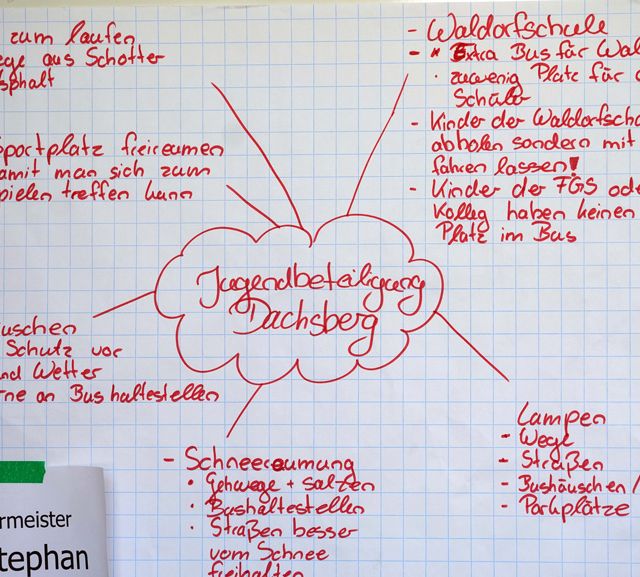 zum laufen
ege aus Schotter
sphalt
portplatz freireumen
amit man sich zum
pielen treffen kann
- Waldorfschule
- * Extra Bus für Wal
· zuwenig Platz für d
Schüler
- Kinder der Waldorfscho
abholen sondern mit
fahren lassen!
- Kinder der FGS ode
Kolleg haben keinen
Platz im Bus
Jugendbeteiligung
Dachsberg
uschen
Schutz vor
nd Wetter
rne an Bushaltestellen
- Schneereumung
• Gehwege + salzen
· Bushaltestellen
· Straßen besser
vom Schnee
freihalten
Lampen
- Wege
- Straßen
- Bushäuschen/
- Parkplätze
rmeister
tephan